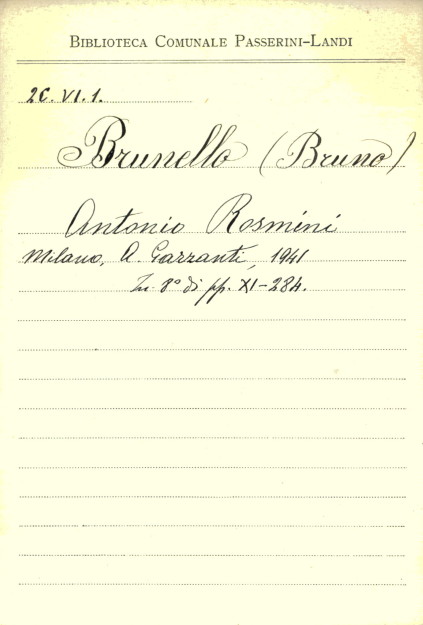 BIBLIOTECA COMUNALE PASSERINI-LANDI
2C. VI. 1.
Brunello (Bruno)
Antonio Rosmini
Milano, A. Garzanti, 1941
In 8° di pp. XI-284.